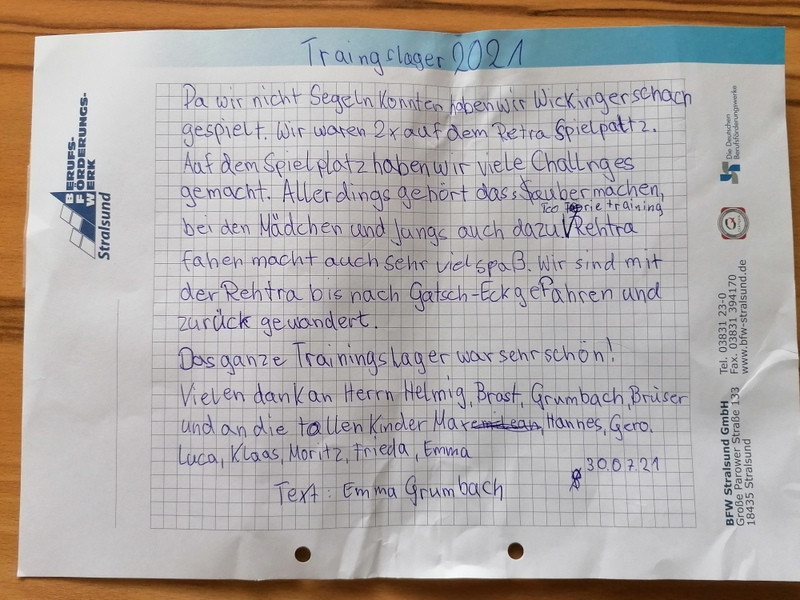 Traingslager 2021
Da wir nicht Segeln Konnten haben wir Wickingerschach
gespielt. Wir waren 2x auf dem Retra Spielpaltz.
Auf dem Spielplatz haben wir viele Challnges
gemacht. Allerdings gehört dass Saubermachen,
bei den Mädchen und Jungs auch dazu. Rehtra
fahen macht auch sehr viel spaß. Wir sind mit
der Rehtra bis nach Gatsch-Eck gefahren und
zurück gewandert.
Das ganze Trainingslager war sehr schön!
Vielen dank an Herrn Helmig, Brast, Grumbach, Brüser
und an die tollen Kinder Max, Hannes, Gero,
Luca, Klaas, Moritz, Frieda, Emma
30.07.21
Text: Emma Grumbach
BERUFS-
FÖRDERUNGS-
WERK
Stralsund
Die Deutschen
Berufsförderungswerke
Tel. 03831 23-0
Fax. 03831 394170
www.bfw-stralsund.de
BFW Stralsund GmbH
Große Parower Straße 133
18435 Stralsund